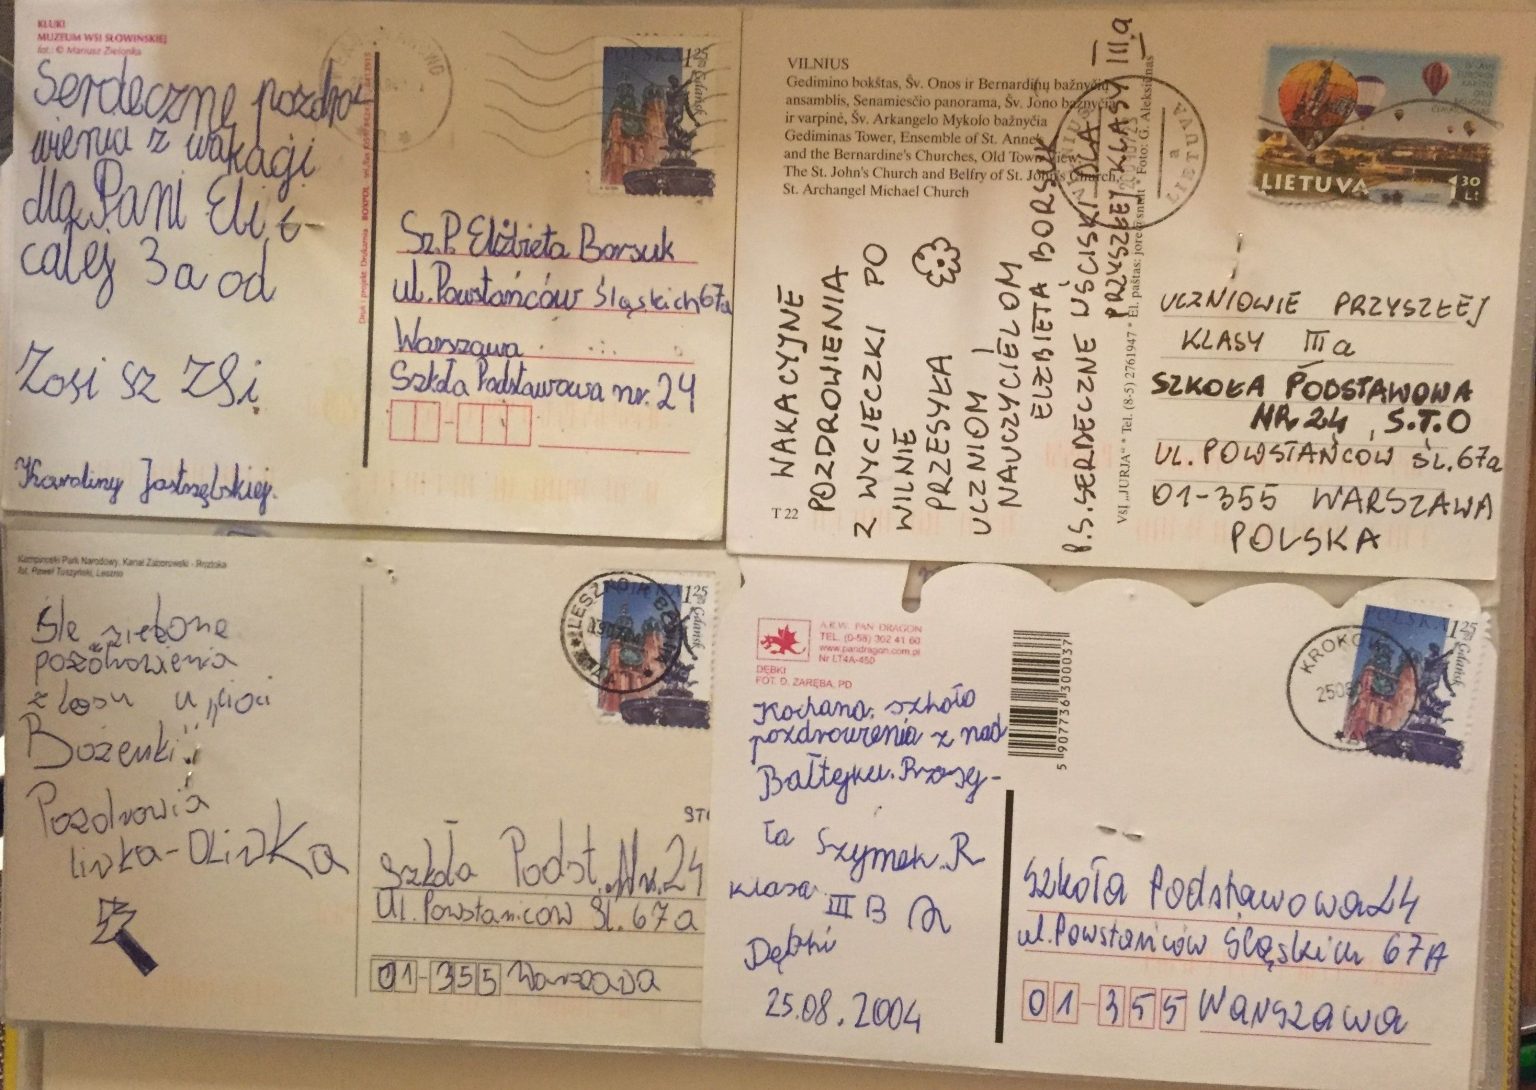 KLUKI
MUZEUM WSI SŁOWIŃSKIEJ
fot.: © Mariusz Zielonka
Serdeczne pozdro-
wienia z wakacji
dla Pani Eli i
całej 3a od
Zosi
Karoliny Jastrzębskiej.
POLSKA 1 25
Gdańsk
Sz.P. Elżbieta Borsuk
ul. Powstańców Śląskich 67a
Warszawa
Szkoła Podstawowa nr. 24
VILNIUS
Gedimino bokštas, Šv. Onos ir Bernardinų bažnyčių
ansamblis, Senamiesčio panorama, Šv. Jono bažnyčia
ir varpinė, Šv. Arkangelo Mykolo bažnyčia
Gediminas Tower, Ensemble of St. Anne's
and the Bernardine's Churches, Old Town view,
The St. John's Church and Belfry of St. John's Church,
St. Archangel Michael Church
T 22
WAKACYJNE
POZDROWIENIA
Z WYCIECZKI PO
WILNIE
PRZESYŁA
UCZNIOM I
NAUCZYCIELOM
ELŻBIETA BORSUK
P.S. SERDECZNE UŚCISKI DLA
PRZYSZŁEJ KLASY III a
VšĮ „JURJA" * Tel. (8-5) 2761947 * El. paštas: * Foto: G. Aleksiūnas
VILNIUS
a
LIETUVA
LIETUVA
1 30
Lt
UCZNIOWIE PRZYSZŁEJ
KLASY III a
SZKOŁA PODSTAWOWA
NR 24 S.T.O
UL. POWSTAŃCÓW ŚL. 67a
01-355 WARSZAWA
POLSKA
Kampinoski Park Narodowy, Kanał Zaborowski - Roztoka
fot. Paweł Tuszyński, Leszno
Śle zielone
pozdrowienia
z lasu u „cioci
Bożenki".
Pozdrowia
1 25
Gdańsk
STO
Szkoła Podst. Nr. 24
Ul. Powstańców Śl. 67a
01-355 Warszawa
A.R.W. PAN DRAGON
TEL. (0-58) 302 41 60
www.pandragon.com.pl
Nr LT4A-450
DĘBKI
FOT. D. ZARĘBA, PD
5 907736 300037
Kochana szkoło
pozdrowienia z nad
Bałtyku. Przesy-
ła Szymek R
klasa III B
Dębki
25.08.2004
KROKOWA
POLSKA 1 25
Gdańsk
Szkoła Podstawowa 24
ul. Powstańców Śląskich 67A
01-355 Warszawa